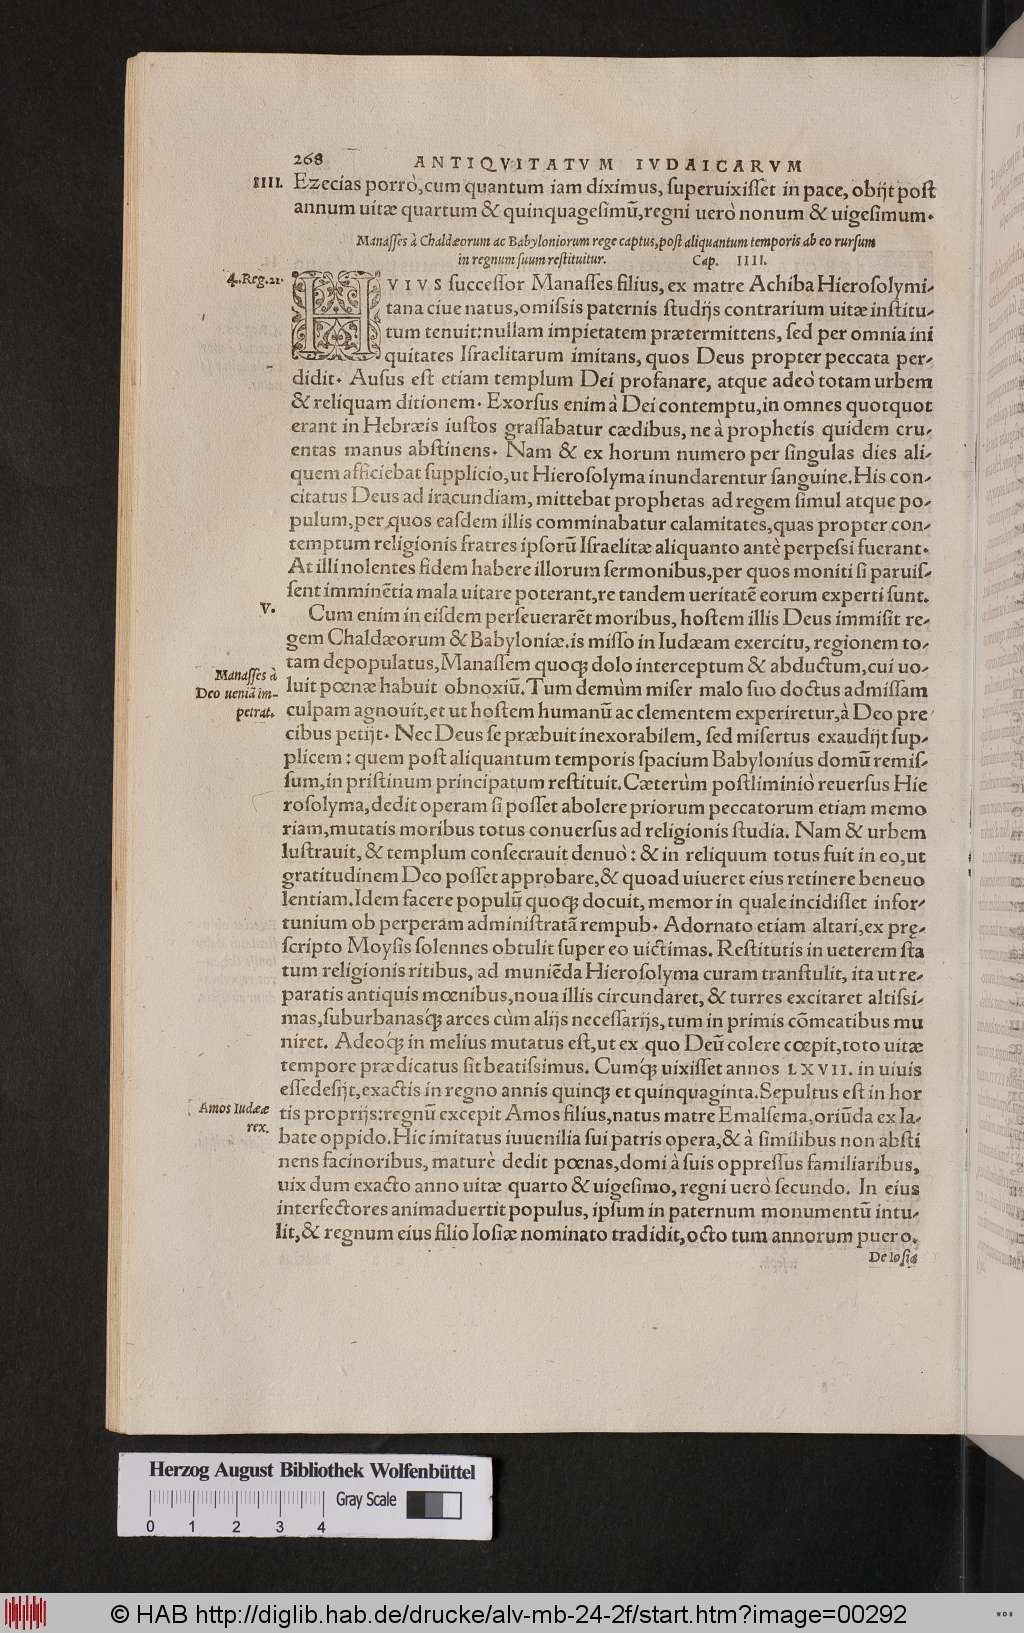 268 ANTIQVITATVM IVDAICARVM
IIII. Ezecias porrò, cum quantum iam diximus, superuixisset in pace, obijt post
annum uitæ quartum & quinquagesimũ, regni uerò nonum & uigesimum.
Manasses à Chaldæorum ac Babyloniorum rege captus, post aliquantum temporis ab eo rursum
in regnum suum restituitur. Cap. IIII.
4. Reg. 21.
HVIVS successor Manasses filius, ex matre Achiba Hierosolymi-
tana ciue natus, omissis paternis studijs contrarium uitæ institu-
tum tenuit: nullam impietatem prætermittens, sed per omnia ini
quitates Israelitarum imitans, quos Deus propter peccata per-
didit. Ausus est etiam templum Dei profanare, atque adeò totam urbem
& reliquam ditionem. Exorsus enim à Dei contemptu, in omnes quotquot
erant in Hebræis iustos grassabatur cædibus, ne à prophetis quidem cru-
entas manus abstinens. Nam & ex horum numero per singulas dies ali-
quem afficiebat supplicio, ut Hierosolyma inundarentur sanguine. His con-
citatus Deus ad iracundiam, mittebat prophetas ad regem simul atque po-
pulum, per quos easdem illis comminabatur calamitates, quas propter con-
temptum religionis fratres ipsorũ Israelitæ aliquanto antè perpessi fuerant.
At illi nolentes fidem habere illorum sermonibus, per quos moniti si paruis-
sent imminẽtia mala uitare poterant, re tandem ueritatẽ eorum experti sunt.
V. Cum enim in eisdem perseuerarẽt moribus, hostem illis Deus immisit re-
gem Chaldæorum & Babyloniæ. is misso in Iudæam exercitu, regionem to-
tam depopulatus, Manassem quoq; dolo interceptum & abductum, cui uo-
Manasses à
Deo ueniã im-
petrat.
luit pœnæ habuit obnoxiũ. Tum demùm miser malo suo doctus admissam
culpam agnouit, et ut hostem humanũ ac clementem experiretur, à Deo pre
cibus petijt. Nec Deus se præbuit inexorabilem, sed misertus exaudijt sup-
plicem: quem post aliquantum temporis spacium Babylonius domũ remis-
sum, in pristinum principatum restituit. Cæterùm postliminiò reuersus Hie
rosolyma, dedit operam si posset abolere priorum peccatorum etiam memo
riam, mutatis moribus totus conuersus ad religionis studia. Nam & urbem
lustrauit, & templum consecrauit denuò: & in reliquum totus fuit in eo, ut
gratitudinem Deo posset approbare, & quoad uiueret eius retinere beneuo
lentiam. Idem facere populũ quoq; docuit, memor in quale incidisset infor-
tunium ob perperam administratã rempub. Adornato etiam altari, ex prę-
scripto Moysis solennes obtulit super eo uictimas. Restitutis in ueterem sta
tum religionis ritibus, ad muniẽda Hierosolyma curam transtulit, ita ut re-
paratis antiquis mœnibus, noua illis circundaret, & turres excitaret altissi-
mas, suburbanasq́; arces cùm alijs necessarijs, tum in primis cõmeatibus mu
niret. Adeoq́; in melius mutatus est, ut ex quo Deũ colere cœpit, toto uitæ
tempore prædicatus sit beatissimus. Cumq́; uixisset annos LXVII. in uiuis
esse desijt, exactis in regno annis quinq; et quinquaginta. Sepultus est in hor
Amos Iudææ
rex.
tis proprijs: regnũ excepit Amos filius, natus matre Emalsema, oriũda ex Ia-
bate oppido. Hic imitatus iuuenilia sui patris opera, & à similibus non absti
nens facinoribus, maturè dedit pœnas, domi à suis oppressus familiaribus,
uix dum exacto anno uitæ quarto & uigesimo, regni uerò secundo. In eius
interfectores animaduertit populus, ipsum in paternum monumentũ intu-
lit, & regnum eius filio Iosiæ nominato tradidit, octo tum annorum puero.
De Iosia
Herzog August Bibliothek Wolfenbüttel
Gray Scale
0 1 2 3 4
© HAB http://diglib.hab.de/drucke/alv-mb-24-2f/start.htm?image=00292